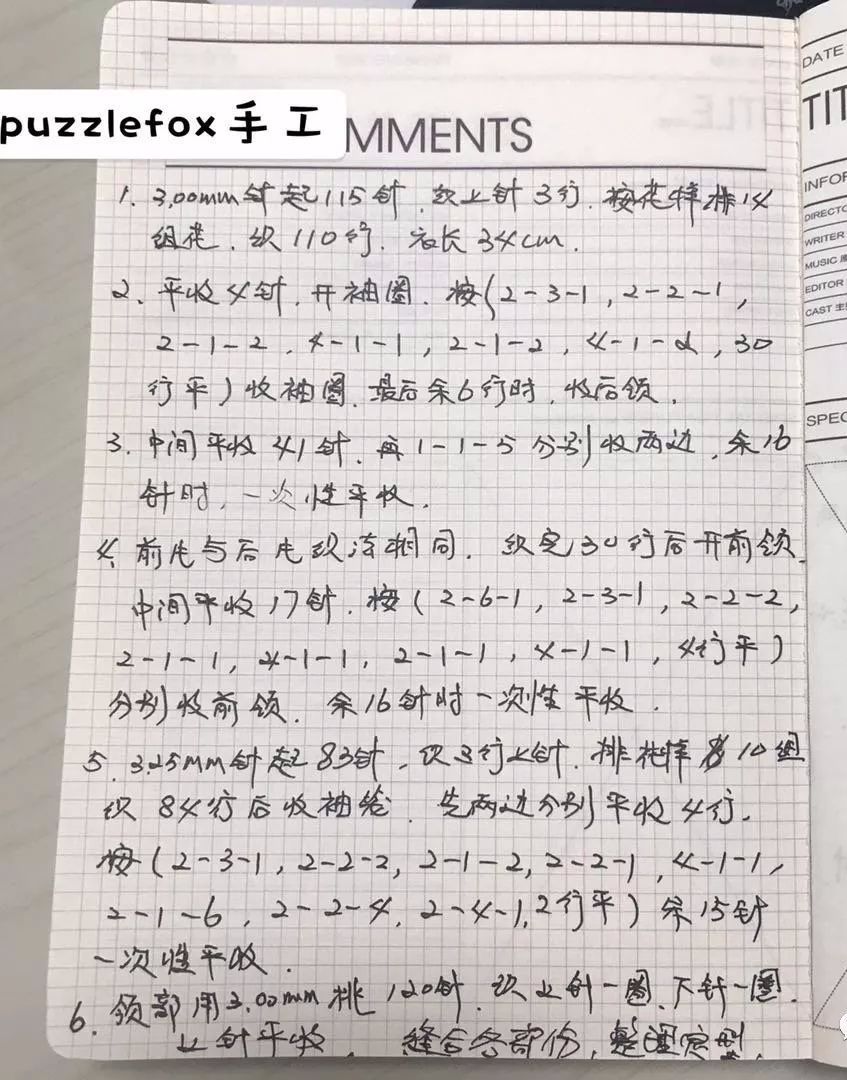 puzzlefox手工
MMENTS
1. 3.00mm针起115针,织上针3行,按花样排14
组花,织110行,衣长34cm.
2、平收4针,开袖圈,按(2-3-1,2-2-1,
2-1-2,4-1-1,2-1-2,4-1-2,30
行平)收袖圈,最后余6行时,收后领.
3.中间平收41针,再1-1-5分别收两边,余16
针时,一次性平收.
4、前片与后片织法相同,织完30行后开前领.
中间平收17针,按(2-6-1,2-3-1,2-2-2,
2-1-1,4-1-1,2-1-1,4-1-1,4行平)
分别收前领,余16针时一次性平收.
5.3.25mm针起83针,织3行上针,排花样10组
织84行后收袖笼,先两边分别平收4行,
按(2-3-1,2-2-2,2-1-2,2-2-1,4-1-1,
2-1-6,2-2-4,2-4-1,2行平)余15针
一次性平收.
6.领部用3.00mm挑120针,织上针一圈、下针一圈.
上针平收,缝合各部份,整理定型.
DATE
TIT
INFOR
DIRECTO
WRITER
MUSIC
EDITOR
CAST 主
SPEC